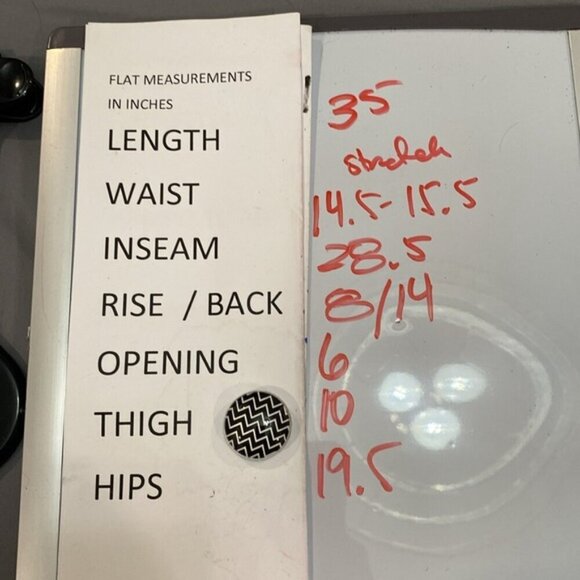 FLAT MEASUREMENTS
IN INCHES
LENGTH 35
stretch
WAIST 14.5-15.5
INSEAM 28.5
RISE / BACK 8/14
OPENING 6
THIGH 10
HIPS 19.5